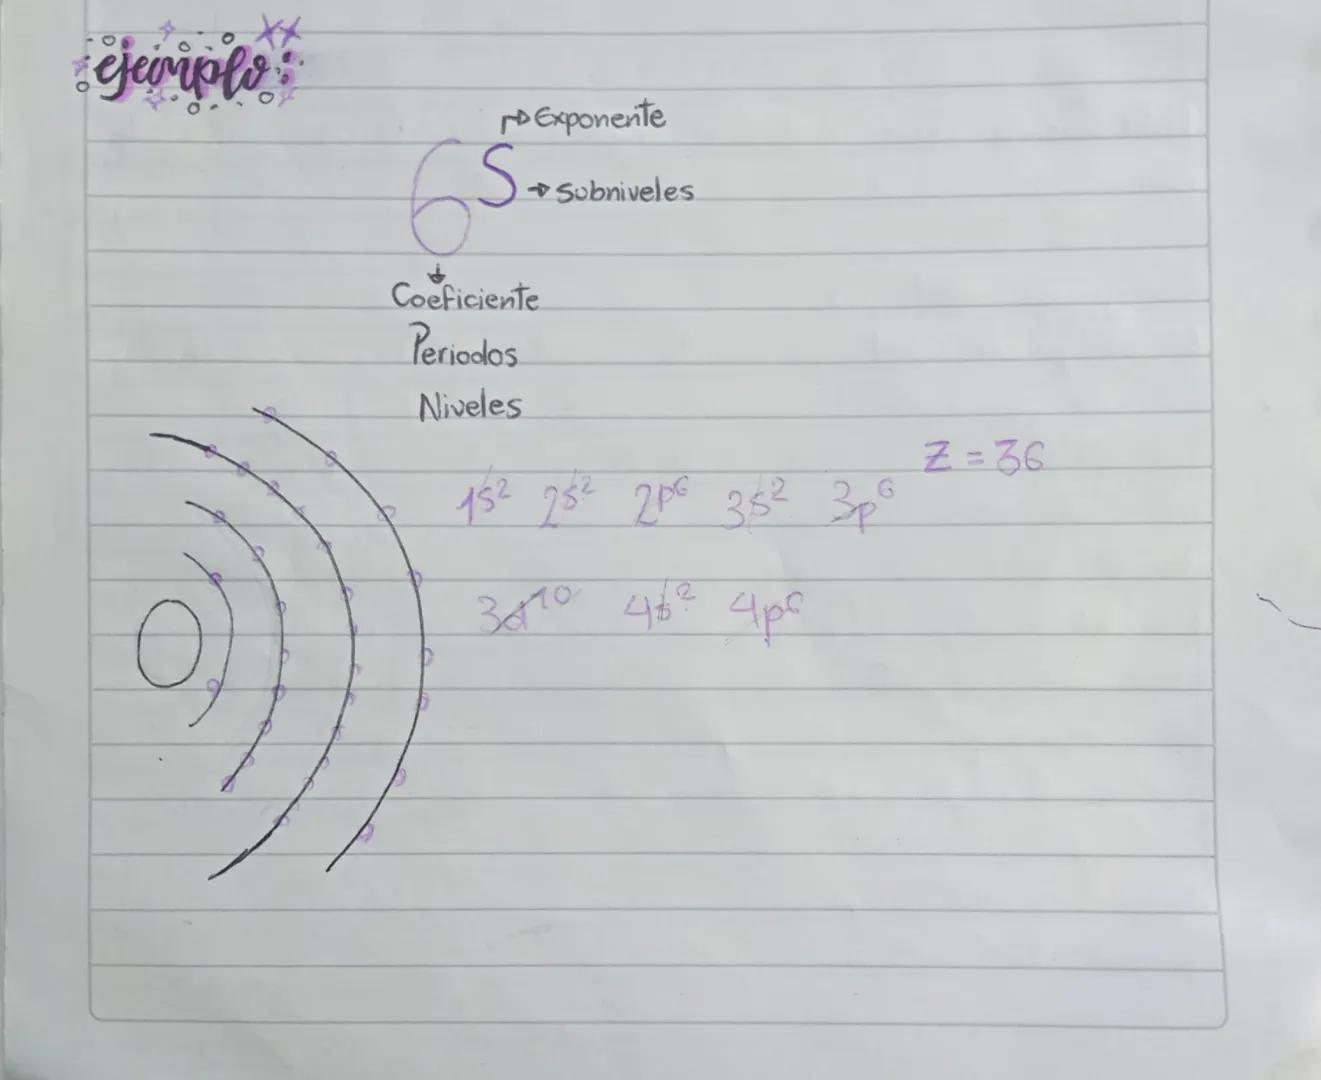 ejemplo:
→ Exponente
6s → subniveles
Coeficiente
Periodos
Niveles
Z = 36
1s² 2s² 2p⁶ 3s² 3p⁶
3d¹⁰ 4s² 4p⁶